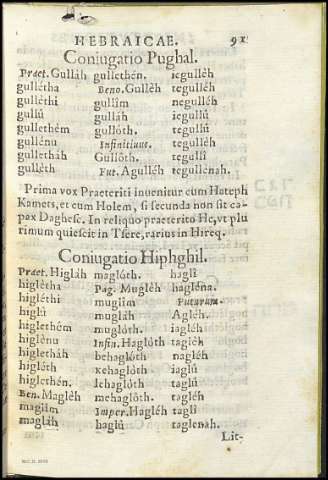 HEBRAICAE. 91
Coniugatio Pughal.
Praet. Gulláh gullethén. iegulléh
gullétha Beno. Gulléh tegulléh
gulléthi gullîm negulléh
gullú gulláh iegullú
gullethém gullóth. tegullú
gullénu Infinitiuus. tegulléh
gulletháh Gullóth. tegullî
gulléth Fut. Agulléh tegullénah.
Prima vox Praeteriti inuenitur cum Hateph
Kamets, et cum Holem, si secunda non sit ca-
pax Daghesc. In reliquo praeterito He, vt plu
rimum quiescit in Tsere, rarius in Hireq.
Coniugatio Hiphghil.
Praet. Higláh maglóth. haglî
higlétha Pag. Mugléh hagléna.
higléthi muglîm Futurum.
higlú mugláh Agléh.
higlethém muglóth. iagléh
higlénu Infin. Haglóth tagléh
higletháh behaglóth nagléh
higléth kehaglóth iaglú
higlethén. lehaglóth taglú
Ben. Magléh mehaglóth. tagléh
maglîm Imper. Hagléh taglî
magláh haglú taglenah.
Lit-